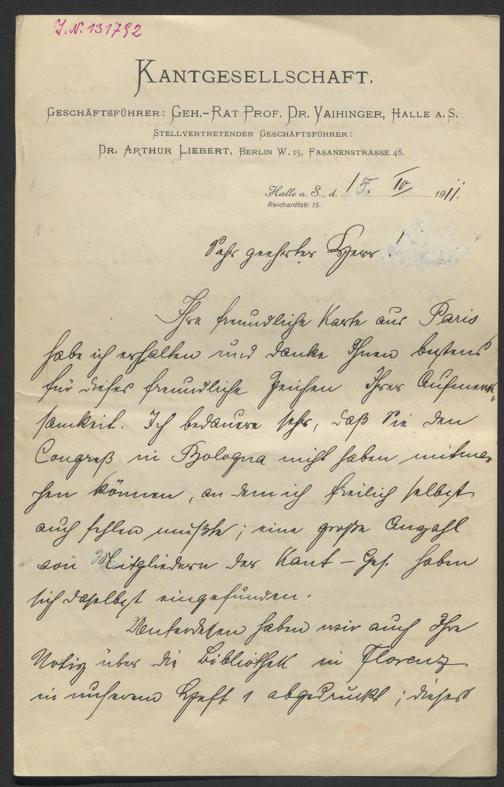 J. N. 131792
KANTGESELLSCHAFT.
GESCHÄFTSFÜHRER: GEH.-RAT PROF. DR. VAIHINGER, HALLE A. S.
STELLVERTRETENDER GESCHÄFTSFÜHRER:
DR. ARTHUR LIEBERT, BERLIN W. 15, FASANENSTRASSE 48.
Halle a. S., d. 15. IV 1911.
Reichardtstr. 15.
Sehr geehrter Herr!
Ihre freundliche Karte aus Paris
habe ich erhalten und danke Ihnen bestens
für dieses freundliche Zeichen Ihrer Aufmerk-
samkeit. Ich bedauere sehr, daß Sie den
Congreß in Bologna nicht haben mitma-
chen können, an dem ich freilich selbst
auch fehlen mußte; eine große Anzahl
von Mitgliedern der Kant-Ges. haben
sich daselbst eingefunden.
Unterdessen haben wir auch Ihre
Notiz über die Bibliothek in Florenz
in unserem Heft 1 abgedruckt; dieses